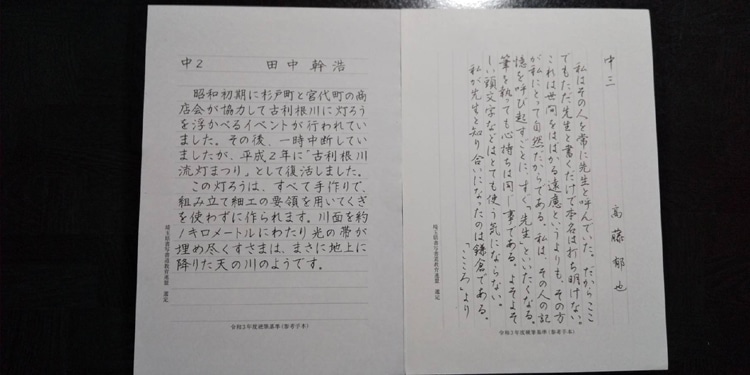 中2　田中幹浩
昭和初期に杉戸町と宮代町の商
店会が協力して古利根川に灯ろう
を浮かべるイベントが行われてい
ました。その後、一時中断してい
ましたが、平成2年に「古利根川
流灯まつり」として復活しました。
この灯ろうは、すべて手作りで、
組み立て細工の要領を用いてくぎ
を使わずに作られます。川面を約
1キロメートルにわたり光の帯が
埋め尽くすさまは、まさに地上に
降りた天の川のようです。
埼玉県書写書道教育連盟　選定
令和3年度硬筆基準(参考手本)
中三　高藤郁也
私はその人を常に先生と呼んでいた。だからここ
でもただ先生と書くだけで本名は打ち明けない。
これは世間をはばかる遠慮というよりも、その方
が私にとって自然だからである。私は、その人の記
憶を呼び起すごとに、すぐ「先生」といいたくなる。
筆を執っても心持ちは同じ事である。よそよそ
しい頭文字などはとても使う気にならない。
私が先生と知り合いになったのは鎌倉である。
「こころ」より
埼玉県書写書道教育連盟　選定
令和3年度硬筆基準(参考手本)